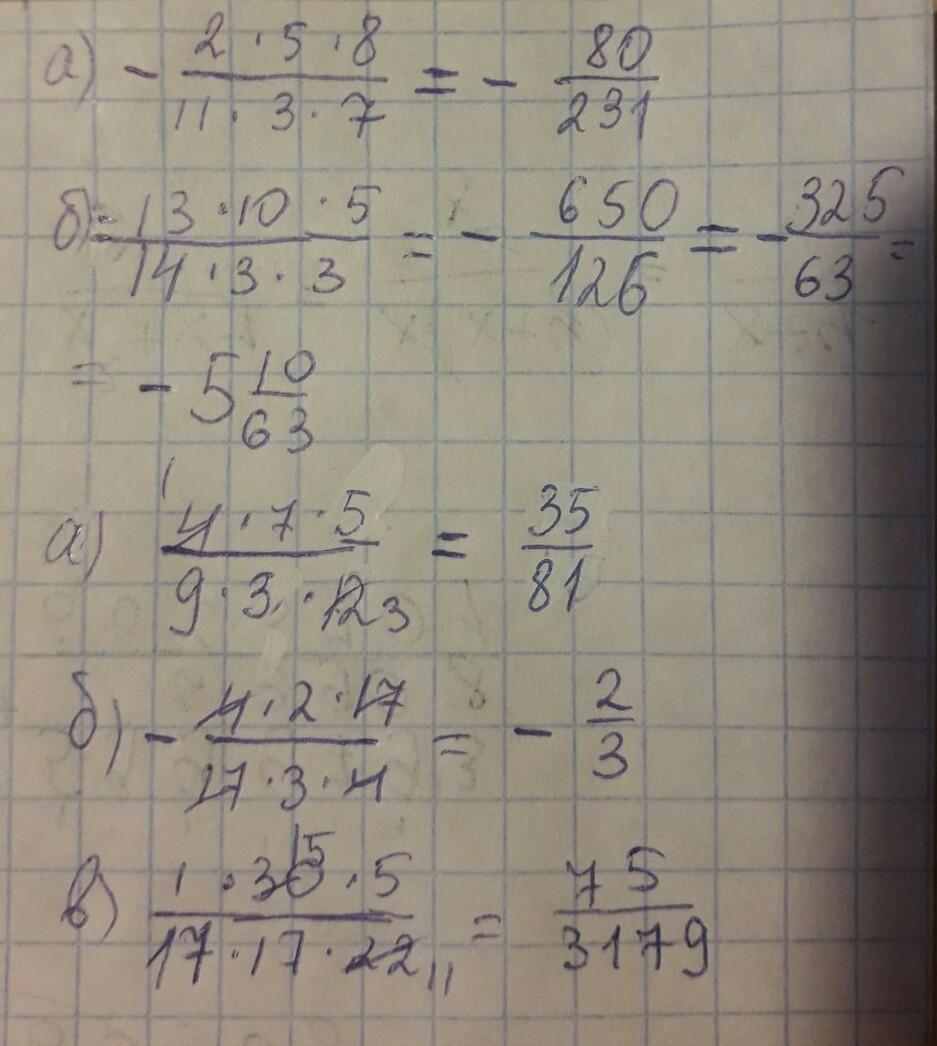 а) - 2·5·8/11·3·7 = - 80/231
б) - 13·10·5/14·3·3 = - 650/126 = - 325/63 =
= - 5 10/63
1
а) 4·7·5/9·3·12 3 = 35/81
б) - 4·2·17/17·3·4 = - 2/3
15
в) 1·30·5/17·17·22 11 = 75/3179